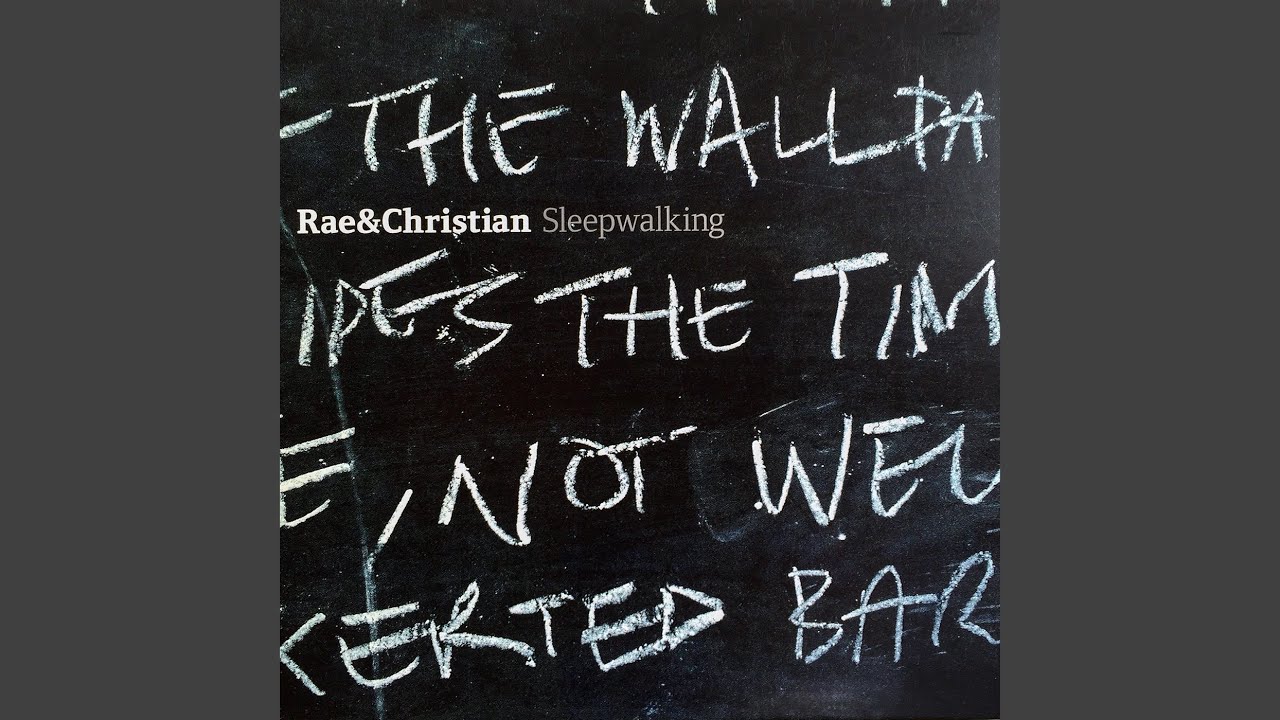 THE WALLPA
Rae&Christian Sleepwalking
IPES THE TIM
E, NOT WEL
KERTED BAR